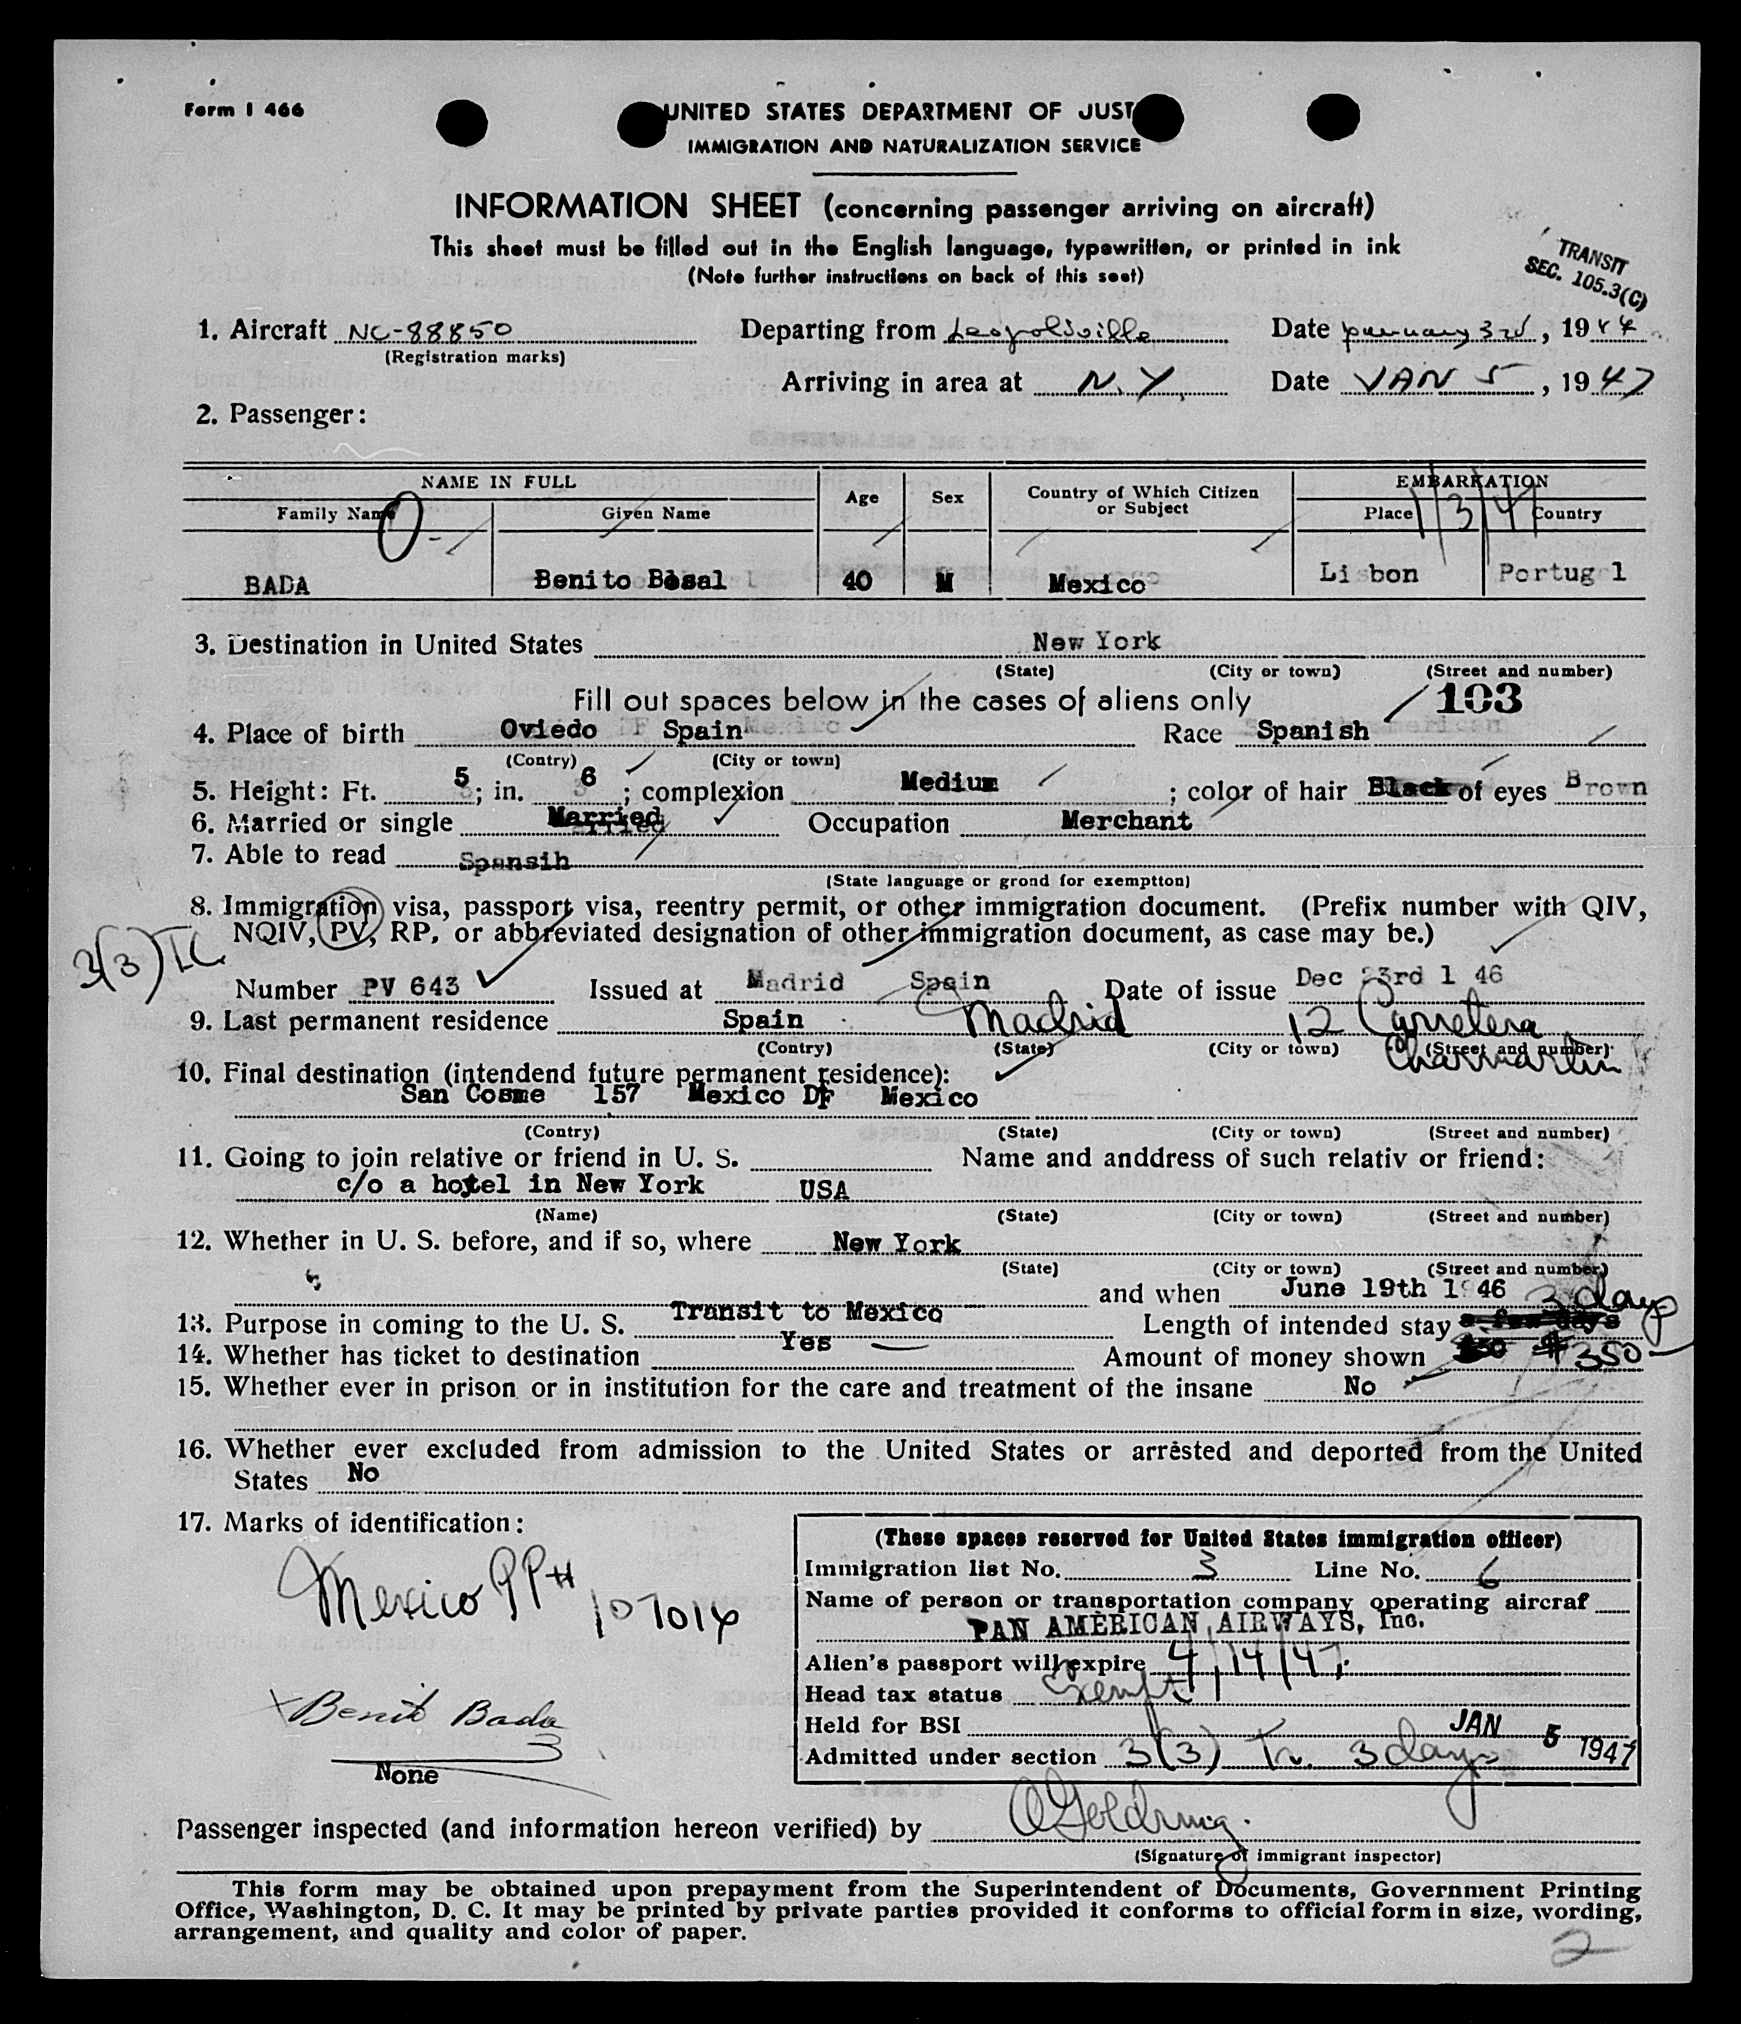 Form I 466
UNITED STATES DEPARTMENT OF JUST
IMMIGRATION AND NATURALIZATION SERVICE
INFORMATION SHEET (concerning passenger arriving on aircraft)
This sheet must be filled out in the English language, typewritten, or printed in ink
(Note further instructions on back of this seet)
TRANSIT
SEC. 105.3(C)
1. Aircraft NC-88850 Departing from Leopoldville Date january 3rd, 19
(Registration marks)
Arriving in area at N.Y. Date JAN 5, 1947
2. Passenger:
NAME IN FULL Age Sex Country of Which Citizen or Subject EMBARKATION
Family Name Given Name Place Country
1/3/47
BADA Benito 40 M Mexico Lisbon Portug l
3. Destination in United States New York
(State) (City or town) (Street and number)
Fill out spaces below in the cases of aliens only 103
4. Place of birth Oviedo Spain Race Spanish
(Contry) (City or town)
5. Height: Ft. 5; in. 6; complexion Medium; color of hair Black of eyes Brown
6. Married or single Married Occupation Merchant
7. Able to read Spansih
(State language or grond for exemptton)
8. Immigration visa, passport visa, reentry permit, or other immigration document. (Prefix number with QIV,
NQIV, PV, RP, or abbreviated designation of other immigration document, as case may be.)
3(3)
Number PV 643 Issued at Madrid Spain Date of issue Dec 23rd 1 46
9. Last permanent residence Spain Madrid 12 Carretera
(Contry) (State) (City or town) (Street and number)
Chamartin
10. Final destination (intendend future permanent residence):
San Cosme 157 Mexico DF Mexico
(Contry) (State) (City or town) (Street and number)
11. Going to join relative or friend in U. S. Name and anddress of such relativ or friend:
c/o a hotel in New York USA
(Name) (State) (City or town) (Street and number)
12. Whether in U. S. before, and if so, where New York
(State) (City or town) (Street and number)
and when June 19th 1946
3 days
13. Purpose in coming to the U. S. Transit to Mexico Length of intended stay a few days
14. Whether has ticket to destination Yes Amount of money shown $350
15. Whether ever in prison or in institution for the care and treatment of the insane No
16. Whether ever excluded from admission to the United States or arrèsted and deported from the United
States No
17. Marks of identification:
Mexico PP# 107014
Benito Bada
None
(These spaces reserved for United States immigration officer)
Immigration list No. 3 Line No. 6
Name of person or transportation company operating aircraf
PAN AMERICAN AIRWAYS, Inc.
Alien's passport will expire 4/14/47
Head tax status Exempt
Held for BSI JAN 5 1947
Admitted under section 3(3) Tr. 3 days
Passenger inspected (and information hereon verified) by
(Signature of immigrant inspector)
This form may be obtained upon prepayment from the Superintendent of Documents, Government Printing
Office, Washington, D. C. It may be printed by private parties provided it conforms to official form in size, wording,
arrangement, and quality and color of paper.
2